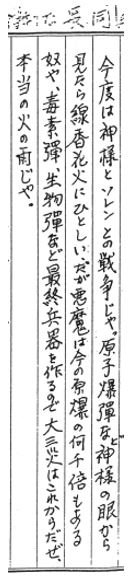 今度は神様とソレンとの戦争じゃ。原子爆彈など神様の眼から
見たら線香花火にひとしい、だが悪魔は今の原爆の何千倍もある
奴や、毒素彈、生物彈など最終兵器を作るので大三災はこれからだぜ、
本当の火の雨じゃ。